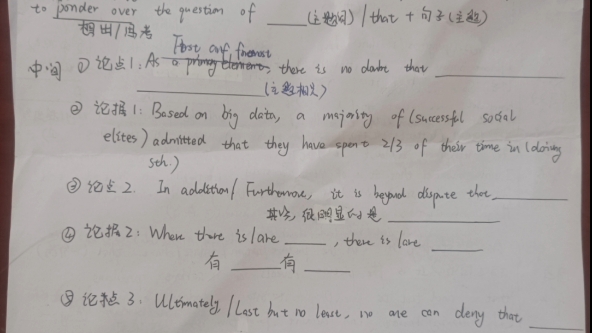 to ponder over the question of ____ (主题词) / that + 句子 (主题)
想出/思考
First and foremost
中间 ① 论点1: As a primary element, there is no doubt that ____
____ (主题相关)
② 论据1: Based on big data, a majority of (successful social
elites) admitted that they have spent 2/3 of their time in (doing
sth.)
③ 论点2. In addition/ Furthermore, it is beyond dispute that ____
其次, 很明显的是 ____
④ 论据2: Where there is/are ____, there is/are ____
有 ____ 有 ____
⑤ 论点3: Ultimately /Last but no least, no one can deny that ____